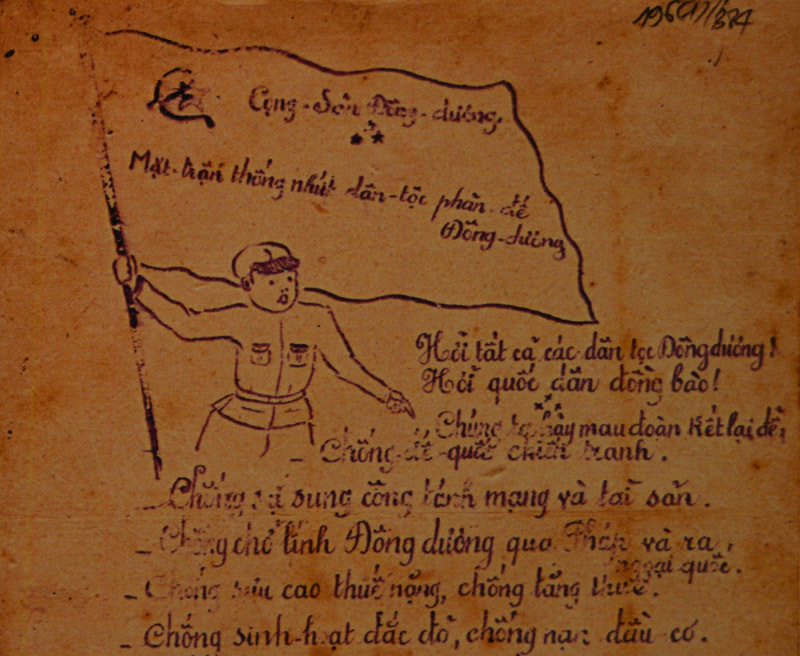 196(1)/374
Cọng-Sản Đông-dương
Mặt-trận thống nhứt dân-tộc phản-đế
Đông-dương
Hỡi tất cả các dân tọc Đông dương!
Hỡi quốc dân đồng bào!
Chúng ta hãy mau đoàn kết lại để:
- Chống đế-quốc chiến tranh.
- Chống sự sung công tánh mạng và tài sản.
- Chống chở lính Đông dương qua Pháp và ra
ngoại quốc.
- Chống sưu cao thuế nặng, chống tăng thuế.
- Chống sinh-hoạt đắc đỏ, chống nạn đầu cơ.